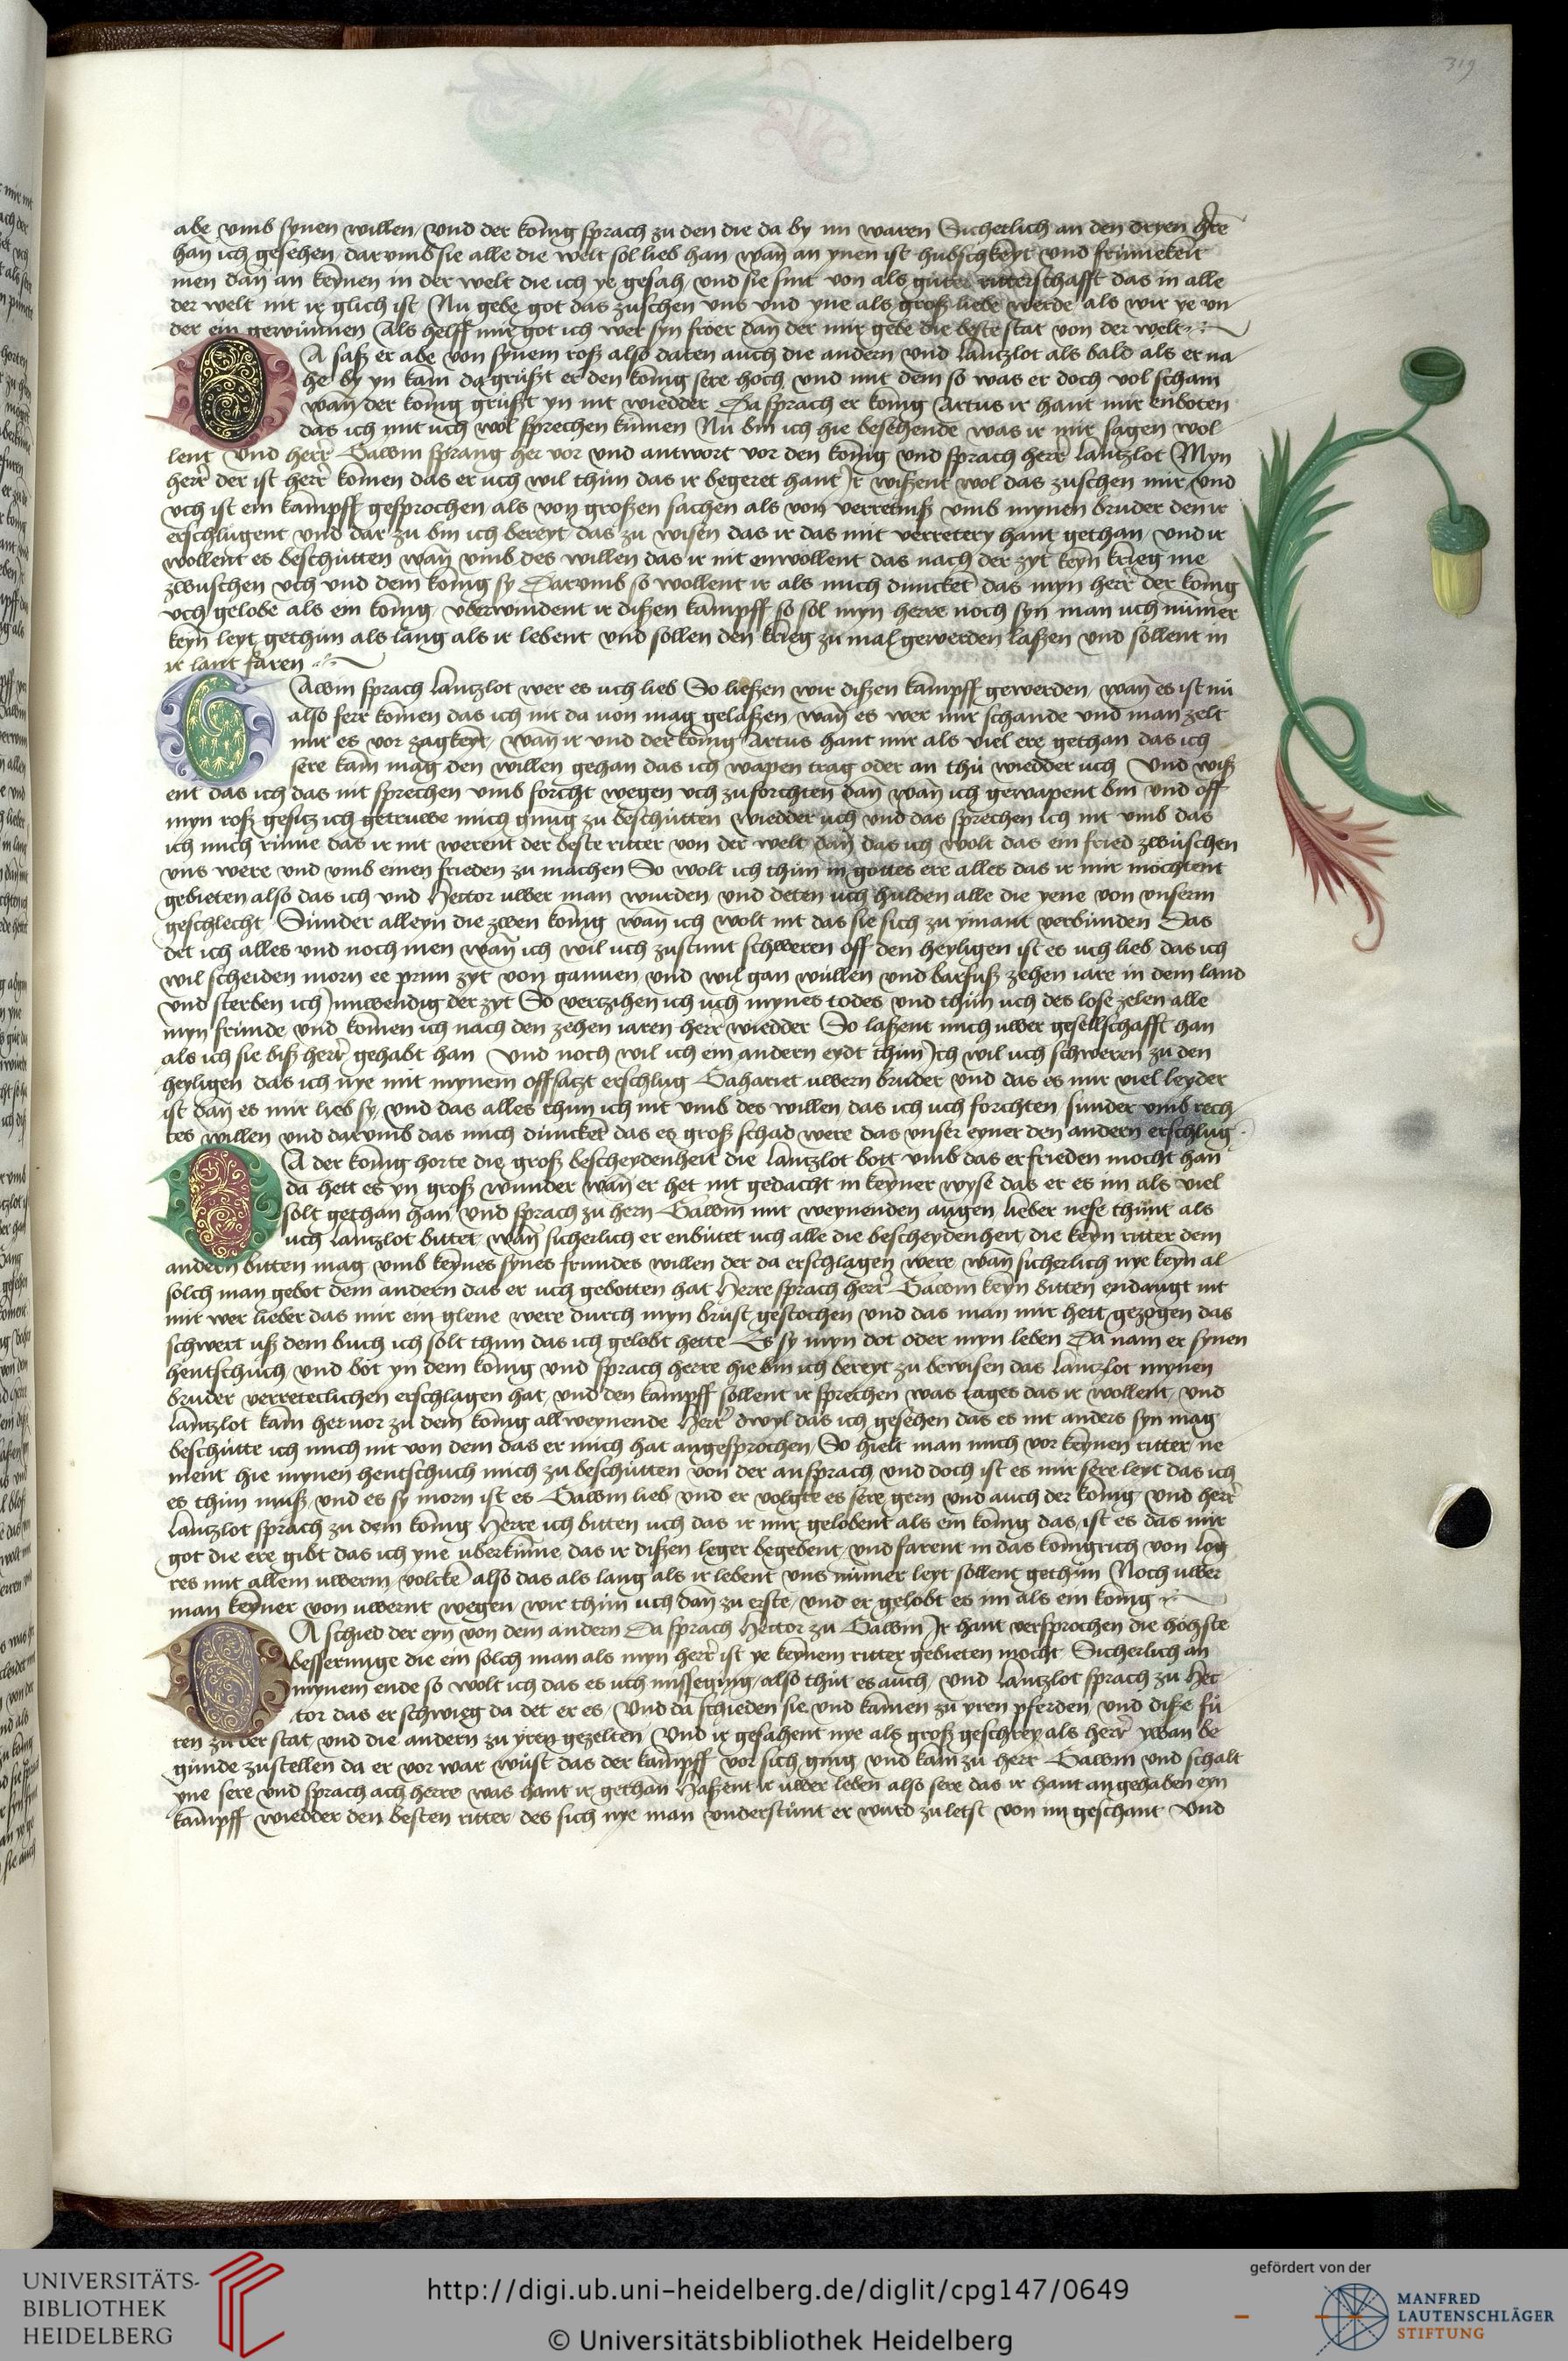 319
abe vmb synen willen / vnd der konig sprach zu den die da by im waren Sicherlich an den dryen h̄re
han ich gesehen / dar vmb sie alle die welt sol lieb han wan̄ an ynen ist hubschkeyt vnd frumekeit
men dan̄ an keynen in der welt die ich ye gesah / vnd sie sint von als guter ritterschafft das in alle
der welt nit ir glich ist Nu gebe got das zuschen vns vnd yne als groß liebe werde als wir ye vn
der ein gewunnen Als helff mir got ich wer syn froer dan̄ der mir gebe die beste stat von der welt
DA saß er abe von synem roß also daten auch die andern vnd lanczlot als bald als er na
he by yn kam da grußt er den konig sere hoch vnd mit dem so was er doch vol scham
wan̄ der konig grußt yn nit wiedder Da sprach er konig Artus ir hant mir enboten
das ich mit uch wol sprechen kummen Nu bin ich hie besehende was ir mir sagen wol
lent Vnd herr̄ Gawin sprang her vor vnd antwort vor den konig vnd sprach herr̄ lanczlot Myn
herr̄ der ist herr̄ komen das er uch wil thun das ir begeret hant Ir wißent wol das zuschen mir vnd
vch ist ein kampff gesprochen als von großen sachen als von verretniß vmb mynen bruder den ir
erschlugent vnd dar zu bin ich bereyt das zu wisen das ir das mit verretery hant gethan vnd ir
wollent es beschutten wan̄ vmb des willen das ir nit enwollent das nach der zyt keyn krieg me
zwuschen vch vnd dem konig sy Dar vmb so wollent ir als mich duncket das myn herr̄ der konig
vch gelobe als ein konig / vberwindent ir dißen kampff so sol myn herre noch syn man uch nūmer
keyn leyt gethun als lang als ir lebent vnd sollen den krieg zu mal gewerden laßen vnd sollent in
ir lant faren
GAwin sprach lanczlot wer es uch lieb So ließen wir dißen kampff gewerden / wan̄ es ist nū
also ferr komen das ich nit da von mag gelaßen / wan̄ es wer mir schande vnd man zelt
mir es vor zagkeyt / wan̄ ir vnd der konig Artus hant mir als viel ere gethan das ich
sere kam mag den willen gehan das ich wapen trag oder an thu wiedder uch Vnd wiß
ent das ich das nit sprechen vmb forcht wegen vch zu forchten dan̄ wan̄ ich gewapent bin vnd off
myn roß gesitz ich getruwe mich gnug zu beschutten wiedder uch vnd das sprechen ich nit vmb das
ich mich rume das ir nit werent der beste ritter von der welt dan̄ das ich wolt das ein fried zwuschen
vns were vnd vmb einen frieden zu machen So wolt ich thun in gottes ere alles das ir mir mochtent
gebieten also das ich vnd Hector uwer man wurden vnd deten uch hulden alle die yene von vnserm
geschlecht Sunder alleyn die zwen konig wan̄ ich wolt nit das sie sich zu ymant verbunden Das
det ich alles vnd noch men wan̄ ich wil uch zustunt schweren off den heyligen ist es uch lieb das ich
wil scheiden morn ee prim zyt von gannen vnd wil gan wullen vnd barfuß zehen iare in dem land
vnd sterben ich innwendig der zyt So verzihen ich uch mynes todes vnd thun uch des lose zelen alle
myn frunde vnd komen ich nach den zehen iaren herr̄ wiedder So laßent mich uwer gesellschafft han
als ich sie biß herr̄ gehabt han Vnd noch wil ich ein andern eydt thun Ich wil uch schweren zu den
heyligen das ich nye mit mynem offsaczt erschlug Gaheriet uwern bruder vnd das es mir viel leyder
ist dan̄ es mir lieb sy / vnd das alles thun ich nit vmb des willen das ich uch forchten sunder vmb rech
tes willen vnd darvmb das mich duncket das es groß schad were das vnser eyner den andern erschlug
DA der konig horte die groß bescheydenheit die lanczlot bott vmb das er frieden mocht han
da hett es yn groß wunder wan̄ er het nit gedacht in keyner wyse das er es im als viel
solt gethan han vnd sprach zu hern Gawin mit weynenden augen lieber nefe thunt als
uch lanczlot bittet wan̄ sicherlich er enbutet uch alle die bescheydenheit die keyn ritter dem
andern bitten mag vmb keynes synes frundes willen der da erschlagen were wan̄ sicherlich nye keyn al
solch man gebot dem andern das er uch gebotten hat Herre sprach herr̄ Gawin keyn bitten endaugt nit
mir wer lieber das mir ein glene were durch myn brust gestochen vnd das man mir hett gezogen das
schwert uß dem buch ich solt thun das ich gelobt hette Es sy myn dot oder myn leben Da nam er synen
hentschuch vnd bot yn dem konig vnd sprach herre hie bin ich bereyt zu bewisen das lanczlot mynen
bruder verreterlichen erschlagen hat vnd den kampff sollent ir sprechen was tages das ir wollent / vnd
lanczlot kam her vor zu dem konig all weynende Herr̄ dwyl das ich gesehen das es nit anders syn mag
beschutte ich mich nit von dem das er mich hat angesprochen So hielt man mich vor keynen ritter ne
ment hie mynen hentschuch mich zu beschutten von der ansprach vnd doch ist es mir sere leyt das ich
es thun muß / vnd es sy morn ist es Gawin lieb vnd er volgte es sere gern vnd auch der konig vnd herr̄
lanczlot sprach zu dem konig Herre ich bitten uch das ir mir gelobent als ein konig das ist es das mir
got die ere gibt das ich yne uberkume das ir dißen leger begebent vnd farent in das konigrich von log
res mit allem uwerm volcke also das als lang als ir lebent vns nūmer leyt sollent gethun Noch uwer
man keyner von uwernt wegen wir thun uch dan̄ zu erste / vnd er gelobt es im als ein konig
DA schied der eyn von dem andern Da sprach Hector zu Gawin Ir hant versprochen die hochste
besserunge die ein solch man als myn herr̄ ist ye keynem ritter gebieten mocht Sicherlich an
mynem ende so wolt ich das es uch misseging / also thut es auch / vnd lanczlot sprach zu Hec
tor das er schwieg da det er es / Vnd da schieden sie vnd kamen zu yren pferden / vnd diße fu
ren zu der stat vnd die andern zu yren gezelten / Vnd ir gesahent nye als groß geschrey als herr̄ ywan be
gunde zustellen da er vor war wust das der kampff vor sich ging vnd kam zu herr Gawin vnd schalt
yne sere vnd sprach ach herre was hant ir gethan Haßent ir uwer leben also sere das ir hant angehaben eyn
kampff wiedder den besten ritter des sich nye man vnderstunt er wurd zu letst von im geschant Vnd
UNIVERSITÄTS-
BIBLIOTHEK
HEIDELBERG
http://digi.ub.uni-heidelberg.de/diglit/cpg147/0649
© Universitätsbibliothek Heidelberg
gefördert von der
MANFRED
LAUTENSCHLÄGER
STIFTUNG